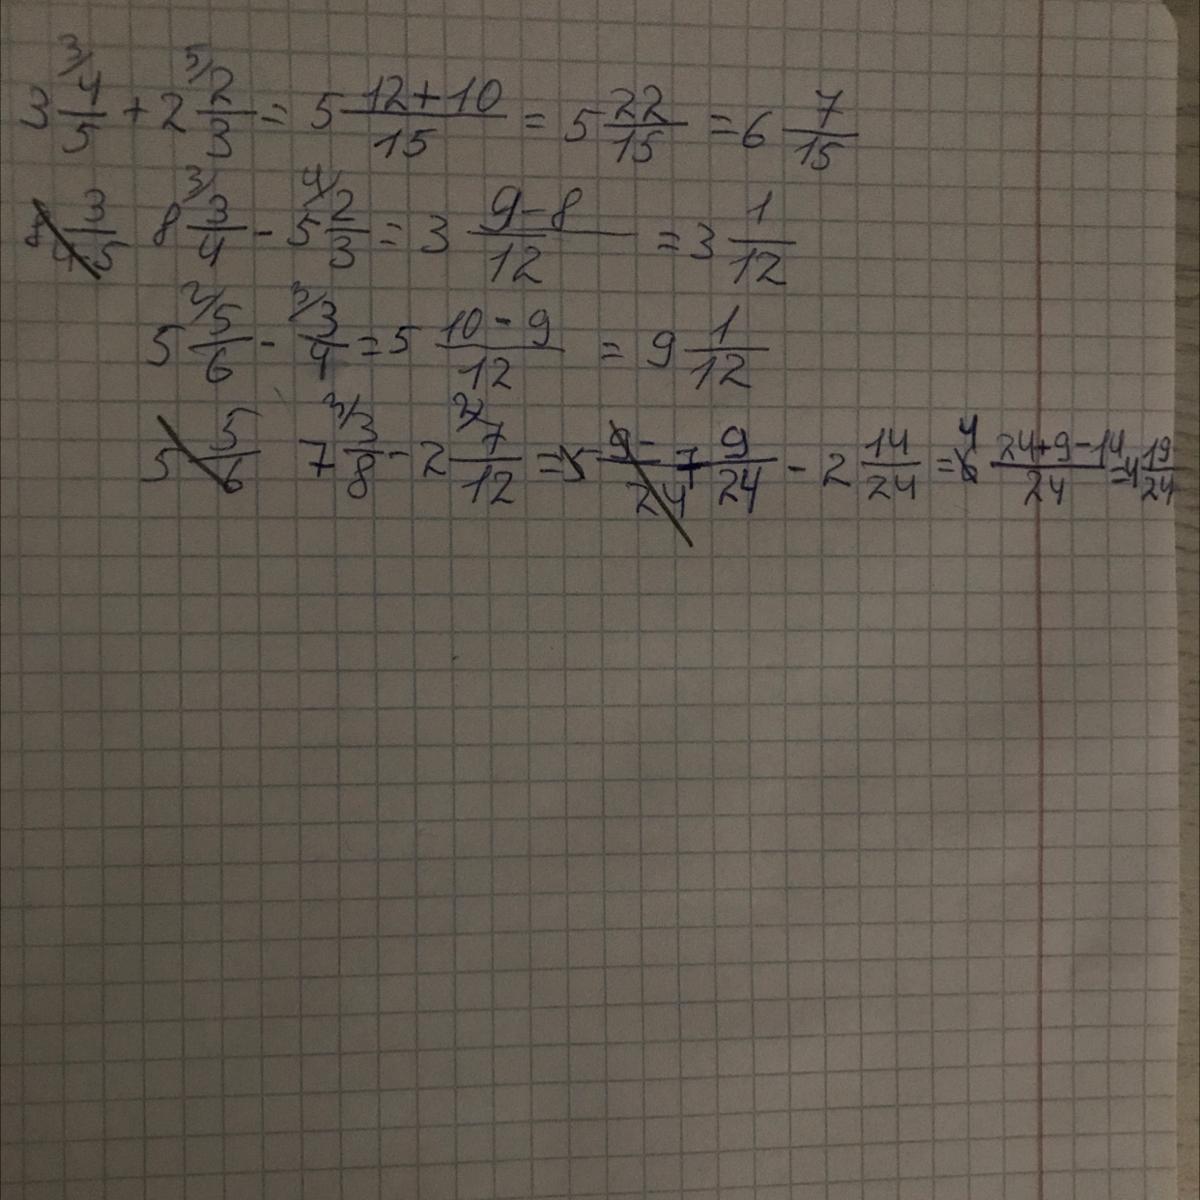 3 3/ 4/5 + 2 5/ 2/3 = 5 (12+10)/15 = 5 22/15 = 6 7/15
8 3/ 3/4 - 5 4/ 2/3 = 3 (9-8)/12 = 3 1/12
5 2/ 5/6 - 3/ 3/4 = 5 (10-9)/12 = 9 1/12
5 5/6 7 3/ 3/8 - 2 2/ 7/12 = 5 9-/24 7 9/24 - 2 14/24 = 4 (24+9-14)/24 = 4 19/24